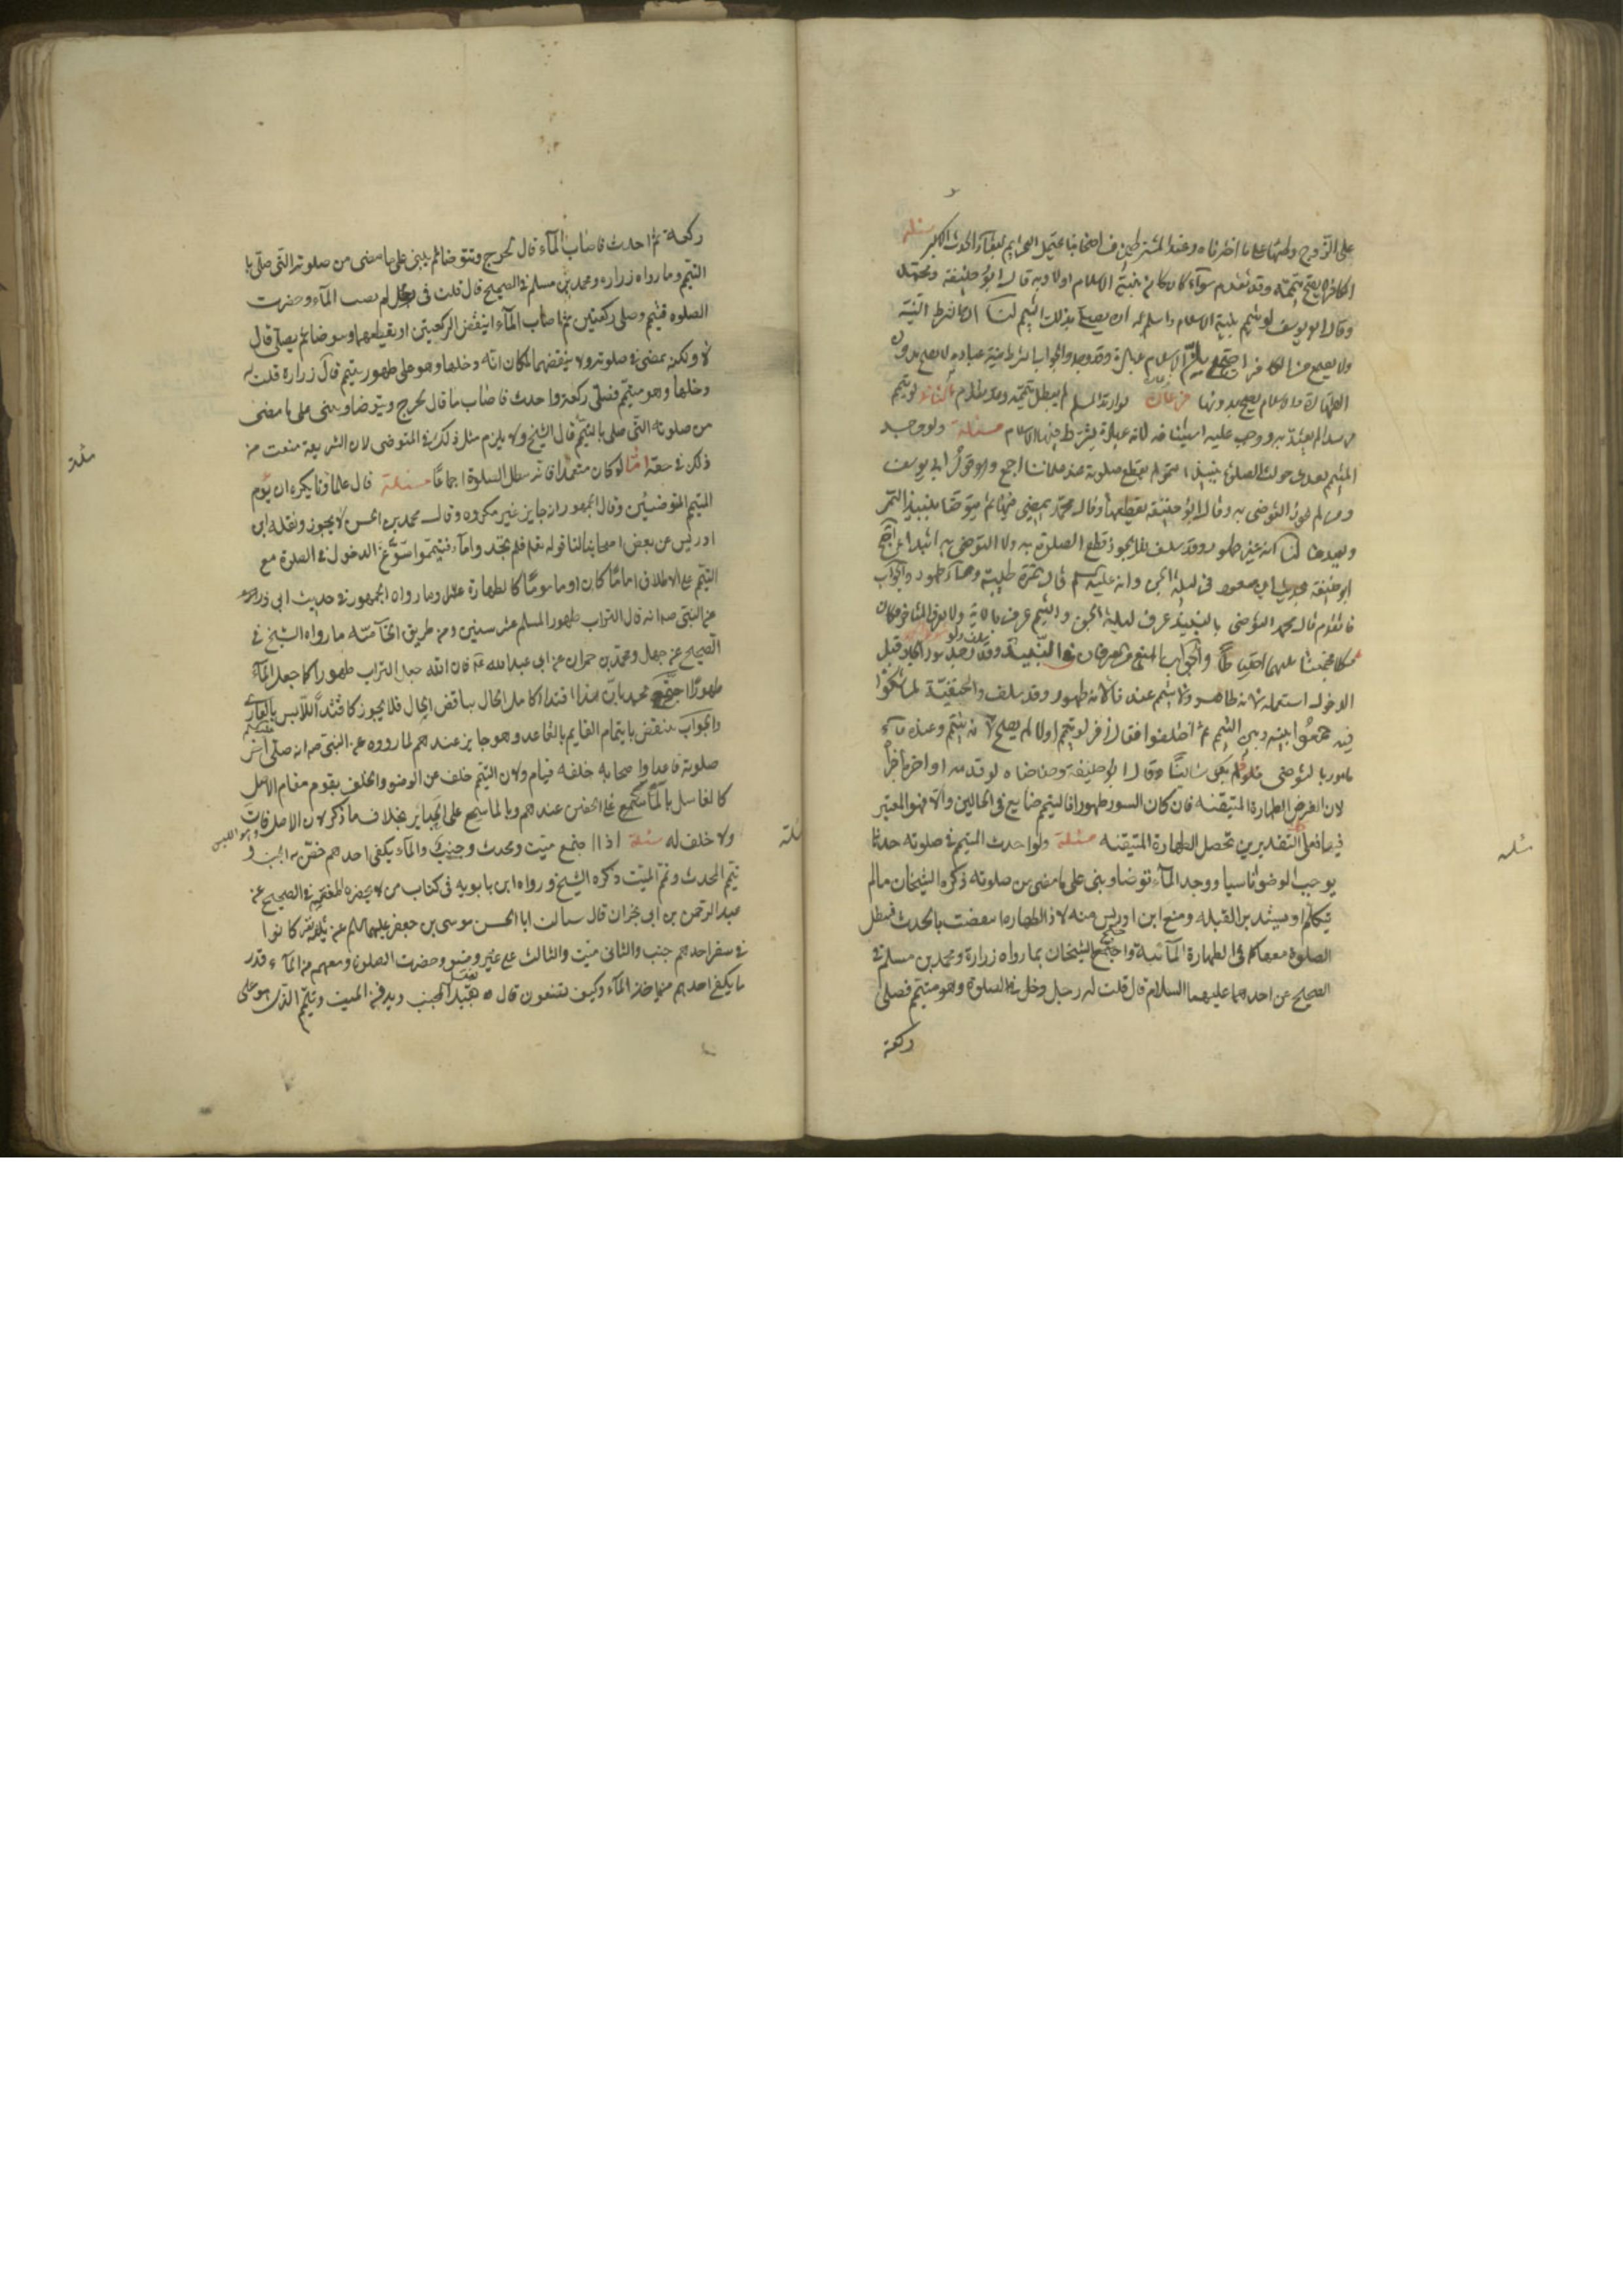 على الزوج وطئها على ما اخترناه وعند المشترطين من اصحابنا
الكافر لا يصح تيممه وقد تقدم سواء كان بنية الاسلام اولا وبه قال ابو حنيفة ومحمد
وقال ابو يوسف لو تيمم بنية الاسلام واسلم له ان يصلي بذلك التيمم لنا انها شرط النية
ولا يصح من الكافر احتج بان الاسلام عبادة والجواب عبادة لا يصح بدون
الطهارة والاسلام يصح بدونها فرعان لو ارتد المسلم لم يبطل تيممه الثاني لو تيمم
لم يعتد به ووجب عليه استينافه لانه عبادة يشترط فيها الاسلام مسئلة ولو وجد
المتيمم بعد دخوله الصلوة نبيذا لم يقطع صلوته عند علمائنا اجمع وهو قول ابي يوسف
التوضي به وقال ابو حنيفة يقطعها وقال محمد يمضي فيها ثم يتوضأ بنبيذ التمر
ويعيدها لنا انه غير طهور وقد سلف فلا يجوز قطع الصلوة به ولا التوضي به ابتداء احتج
ابو حنيفة بحديث ابن مسعود في ليلة الجن وانه عليه السلم قال تمرة طيبة وماء طهور والجواب
ما تقدم قال محمد التوضي بالنبيذ عرف ليلة الجن والتيمم عرف بالاية ولا يعرف المتاخر فكان
مشكلا فجمعنا بينهما احتياطا والجواب المنع من العرفان في النبيذ
الدخول استعمله لانه طاهر ولا يتيمم عندنا لانه طهور وقد سلف والحنفية لما شكوا
فيه جمعوا بينه وبين التيمم ثم اختلفوا فقال زفر لو تيمم اولا لم يصح لانه تيمم وعنده ماء
مامور بالتوضي به وقال ابو حنيفة وصاحباه لو قدمه او اخره اجزأ
لان الفرض الطهارة المتيقنة فان كان السور طهورا فالتيمم ضايع في الحالين والا فهو المعتبر
فيهما فعلى التقديرين تحصل الطهارة المتيقنة مسئلة ولو احدث المتيمم في صلوته حدثا
يوجب الوضوء ناسيا ووجد الماء توضأ وبنى على ما مضى من صلوته ذكره الشيخان ما لم
يتكلم او يستدبر القبلة ومنع ابن ادريس منه لان الطهارة انتقضت بالحدث فتبطل
الصلوة معها كما في الطهارة المائية واحتج الشيخان بما رواه زرارة ومحمد بن مسلم في
الصحيح عن احدهما عليهما السلام قال قلت له رجل دخل في الصلوة وهو متيمم فصلى
ركعة
ركعة ثم احدث فاصاب الماء قال يخرج ويتوضأ ثم يبنى على ما مضى من صلوته التى صلى با
التيمم وما رواه زرارة ومحمد بن مسلم في الصحيح قال قلت في رجل لم يصب الماء وحضرت
الصلوة فتيمم وصلى ركعتين ثم اصاب الماء اينقض الركعتين او يقطعهما ويتوضأ ثم يصلي قال
لا ولكنه يمضي في صلوته ولا ينقضهما لمكان انه دخلها وهو على طهور بتيمم قال زرارة قلت له
دخلها وهو متيمم فصلى ركعة واحدث فاصاب ما قال يخرج ويتوضأ ويبنى على ما مضى
من صلوته التى صلى بالتيمم قال الشيخ ولا يلزم مثل ذلك في المتوضى لان الشريعة منعت من
ذلك في حقه اما لو كان متعمدا فانه يبطل الصلوة اجماعا مسئلة قال علماؤنا يكره ان يؤم
المتيمم المتوضيئين وقال الجمهور انه جايز غير مكروه وقال محمد بن الحسن لا يجوز ونقله ابن
ادريس عن بعض اصحابنا لنا قوله تعالى فلم تجدوا ماء فتيمموا سوغ الدخول في الصلوة مع
التيمم على الاطلاق اماما كان او ماموما كالطهارة وما رواه الجمهور في حديث ابي ذر
عن النبي ص انه قال التراب طهور المسلم عشر سنين ومن طريق الخاصة ما رواه الشيخ في
الصحيح عن جميل ومحمد بن حمران عن ابي عبد الله ع قال ان الله جعل التراب طهورا كما جعل الماء
طهورا احتج محمد بان هذا اقتداء كامل الحال بناقص الحال فلا يجوز كاقتداء اللابس بالعارى
والجواب ينتقض بايتمام القايم بالقاعد وهو جايز عندهم لما رووه عن النبي ص انه صلى اخر
صلوته قاعدا واصحابه خلفه قيام ولان التيمم خلف عن الوضوء والخلف يقوم مقام الاصل
كالغاسل بالماسح على الخفين عندهم وبالماسح على الجباير بخلاف ما ذكر لان الاصل فات وهو اللبس
ولا خلف له مسئلة اذا اجتمع ميت ومحدث وجنب والماء يكفى احدهم خص به الجنب و
تيمم المحدث ويمم الميت ذكره الشيخ ورواه ابن بابويه في كتاب من لا يحضره الفقيه في الصحيح عن
عبد الرحمن بن ابي نجران قال سالت ابا الحسن موسى بن جعفر عليهما السلم عن ثلاثة نفر كانوا
في سفر احدهم جنب والثانى ميت والثالث على غير وضوء وحضرت الصلوة ومعهم من الماء قدر
ما يكفي احدهم من ياخذ الماء وكيف يصنعون قال يغتسل الجنب ويدفن الميت ويتيمم الذى هو على
مسئلة
مسئلة
مسئلة